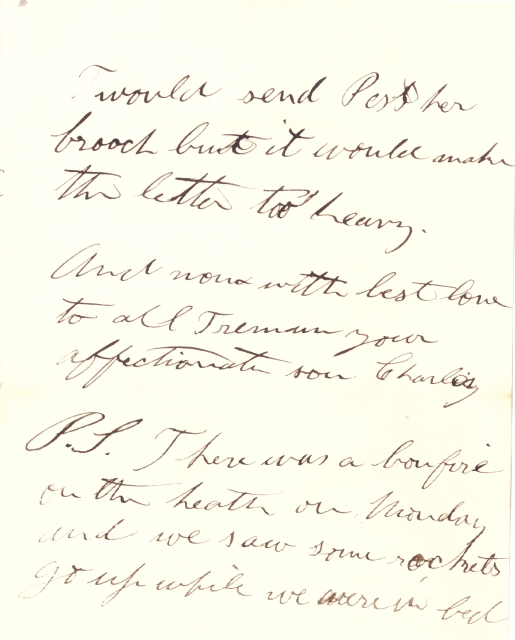 I would send Pet her
brooch but it would make
the letter too heavy.
And now with best love
to all I remain your
affectionate son Charley
P.S. There was a bonfire
on the heath on Monday
and we saw some rockets
go up while we were in bed